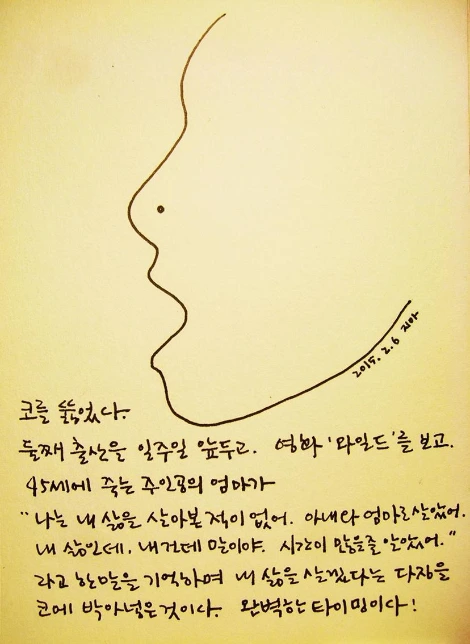 2015. 2. 6 지아
코를 뚫었다.
둘째 출산을 일주일 앞두고. 영화 '와일드'를 보고.
45세에 죽는 주인공의 엄마가
"나는 내 삶을 살아본 적이 없어. 아내와 엄마로 살았어.
내 삶인데, 내건데 말이야. 시간이 많을줄 알았어."
라고 한말을 기억하며 내 삶을 살겠다는 다짐을
코에 박아넣은것이다. 완벽한 타이밍이다!